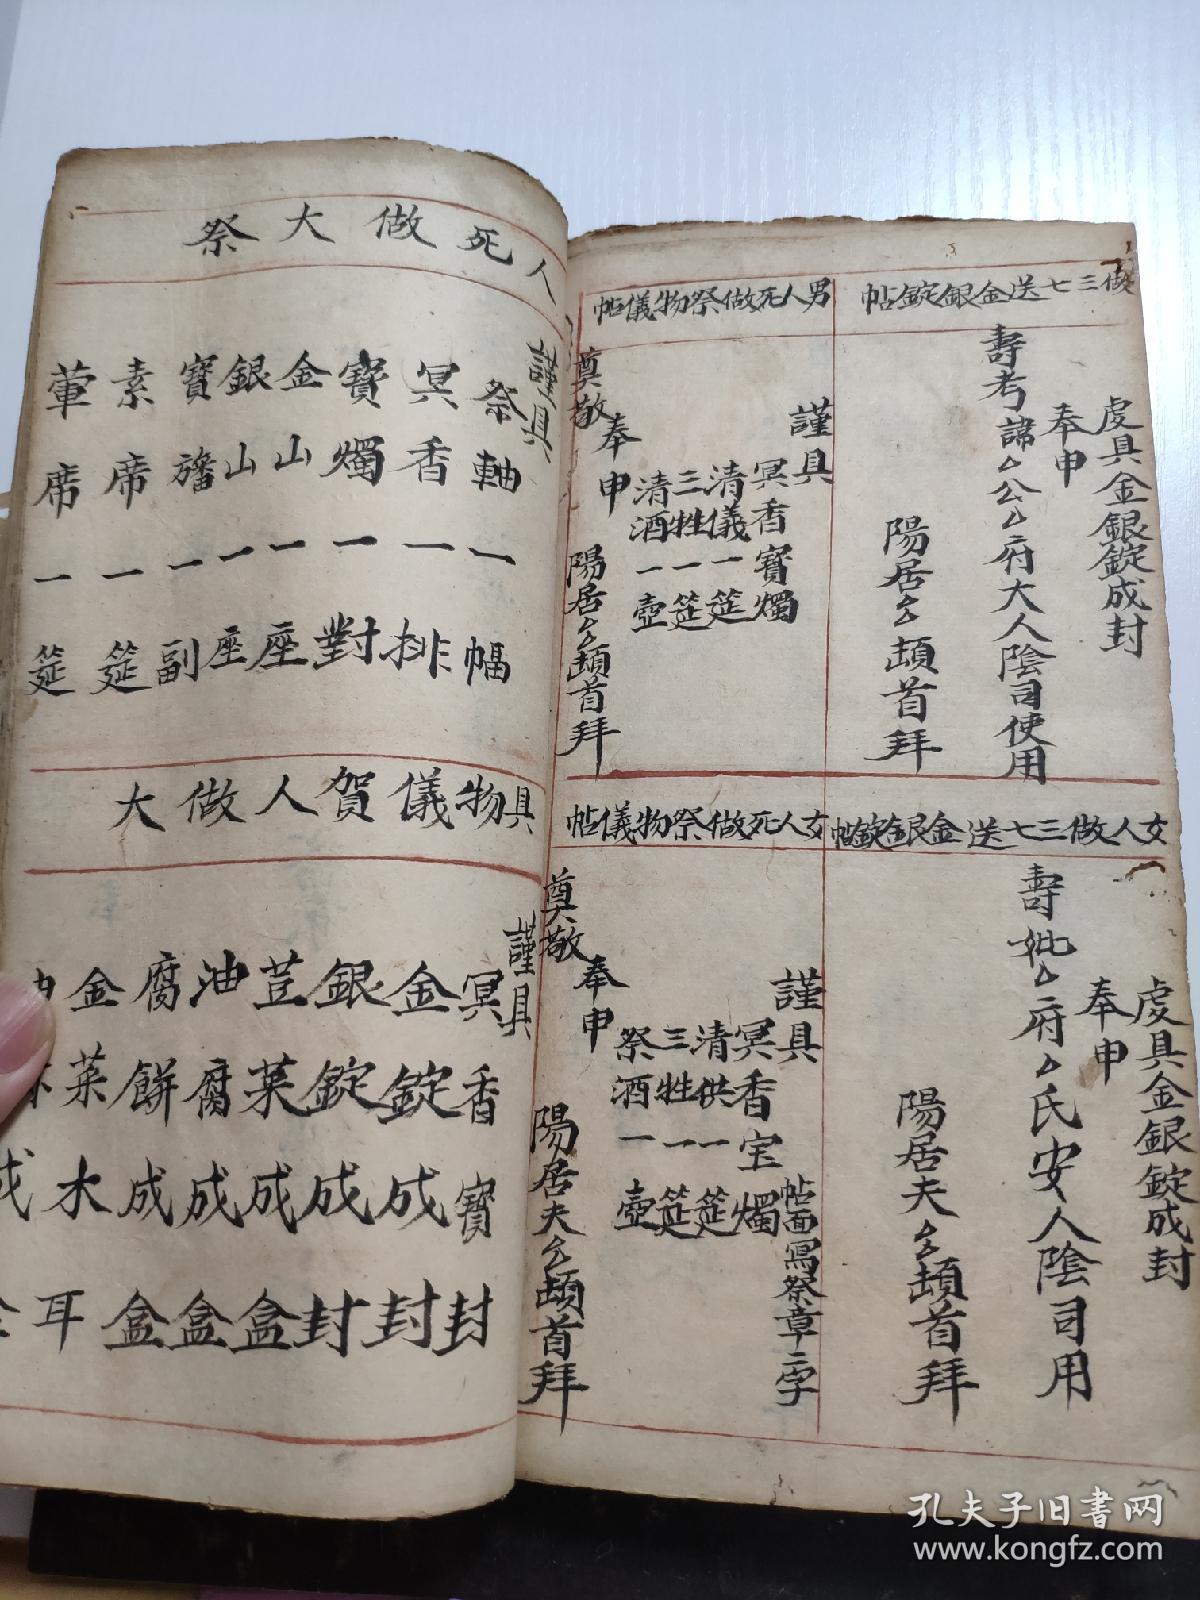 做三七送金銀錠帖
虔具金銀錠成封
奉申
壽考諱厶公厶府大人陰司使用
陽居厶厶頓首拜
男人死做祭物儀帖
謹具
冥香寶燭
清儀一筵
三牲一筵
清酒一壺
奉申
奠敬
陽居厶厶頓首拜
女人做三七送金銀錠帖
虔具金銀錠成封
奉申
壽妣厶府厶氏安人陰司用
陽居夫厶厶頓首拜
女人死做祭物儀帖
帖面寫祭章二字
謹具
冥香宝燭
清供一筵
三牲一筵
祭酒一壺
奉申
奠敬
陽居夫厶厶頓首拜
人死做大祭
謹具
祭軸一幅
冥香一排
寶燭一對
金山一座
銀山一座
寶旛一副
素席一筵
葷席一筵
具物儀賀人做大
謹具
冥香寶封
金錠成封
銀錠成封
荳菜成盒
油腐成盒
腐餅成盒
金菜木耳
孔夫子旧书网
www.kongfz.com